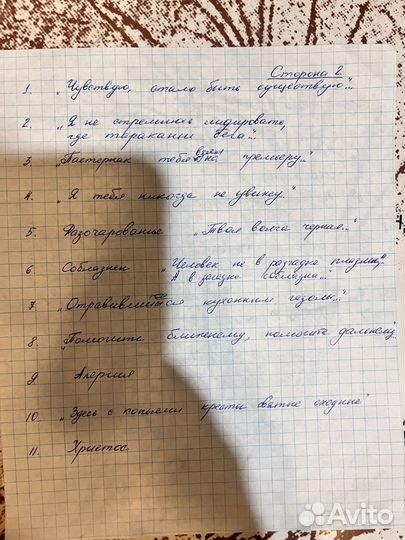 Сторона 2
1. „Чувствую, стало быть существую..."
2. „Я не стремлюсь лидировать,
где тараканьи бега..."
3. „Пастернак тебя взял на премьеру.."
4. „Я тебя никогда не увижу.."
5 Разочарование „Твоя волга черная.."
6 Соблазнен „Человек не в разгадке плазмы,
А в загадке соблазна..."
7 „Отравившийся кухонным газом.."
8 „Помогите ближнему, помогите дальнему.
9 Алергия
10 „Здесь с копьями кресты святые сходные"
11. Христос
Avito